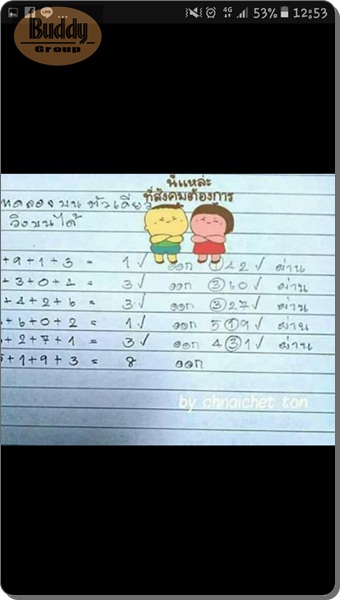 Buddy
Group
4G 53% 12:53
นี่แหละ
ที่สังคมต้องการ
บน ตัวเดียว
วิ่งบนได้
+9+1+3 = 1✓ ออก ①42✓ ผ่าน
+3+0+1 = 3✓ ออก ③60✓ ผ่าน
+4+2+6 = 3✓ ออก ③27✓ ผ่าน
+6+0+2 = 1✓ ออก 5①9✓ ผ่าน
+2+7+1 = 3✓ ออก 4③1✓ ผ่าน
+1+9+3 = 8 ออก
by chnaichet ton